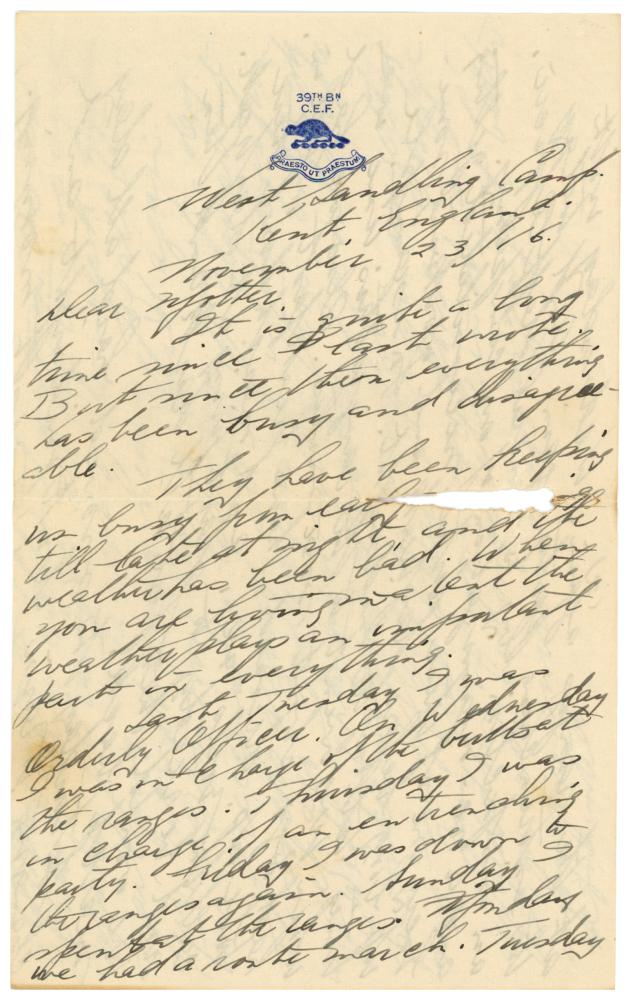 39TH BN
C.E.F.
PRAESTO UT PRAESTUM
West Sandling Camp.
Kent England.
November 23/16.
Dear Mother.
It is quite a long
time since I last wrote.
But since then everything
has been busy and disagree-
able.
They have been keeping
us busy from early
till late at night and the
weather has been bad. When
you are living in a tent the
weather plays an important
part in everything.
Last Tuesday I was
Orderly Officer. On Wednesday
I was in charge of the butts at
the ranges. Thursday I was
in charge of an entrenching
party. Friday I was down to
the ranges again. Sunday I
spent at the ranges. Monday
we had a route march. Tuesday